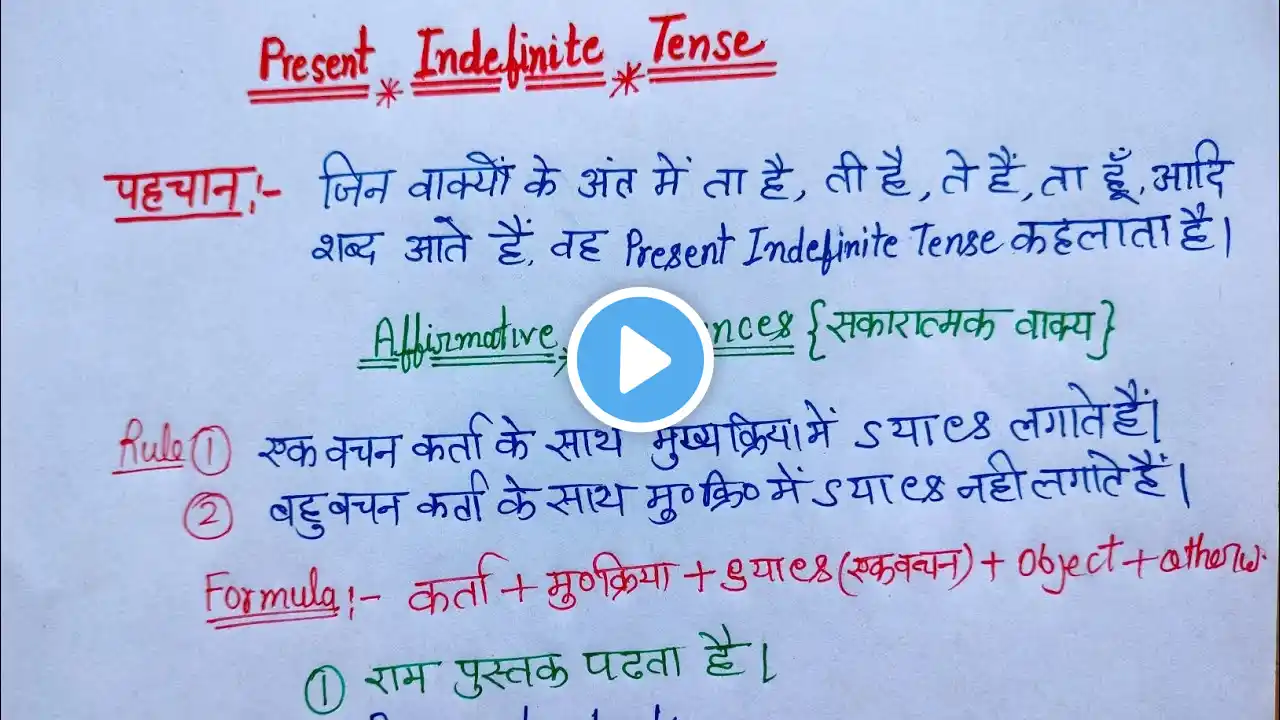 Present * Indefinite * Tense
पहचान:- जिन वाक्यों के अंत में ता है, ती है, ते हैं, ता हूँ, आदि
शब्द आते हैं, वह Present Indefinite Tense कहलाता है।
Affirmative {सकारात्मक वाक्य}
Rule ① एक वचन कर्ता के साथ मुख्य क्रिया में s या es लगाते हैं।
② बहुबचन कर्ता के साथ मु०क्रि० में s या es नही लगाते हैं।
Formula:- कर्ता + मु०क्रिया + s या es (एकवचन) + Object + other w.
① राम पुस्तक पढता है।